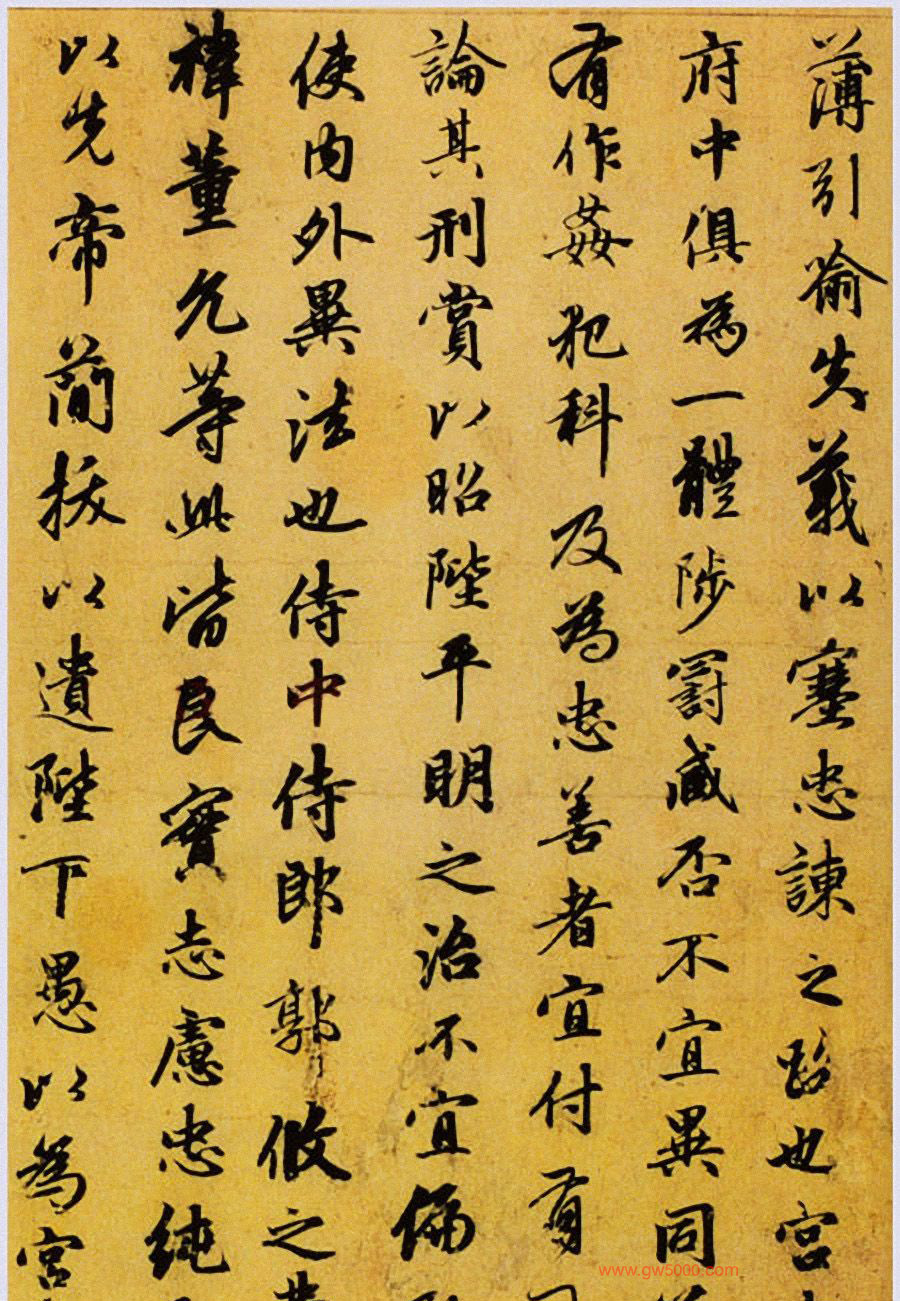 薄引喻失義以塞忠諫之路也宮
府中俱為一體陟罰臧否不宜異同
有作姦犯科及為忠善者宜付有
論其刑賞以昭陛平明之治不宜偏
使內外異法也侍中侍郎郭攸之
禕董允等此皆良實志慮忠純
以先帝簡拔以遺陛下愚以為宮
www.gw5000.com